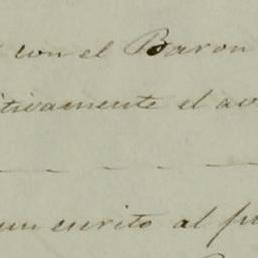 con el Baron
itivamente el
un escrito al